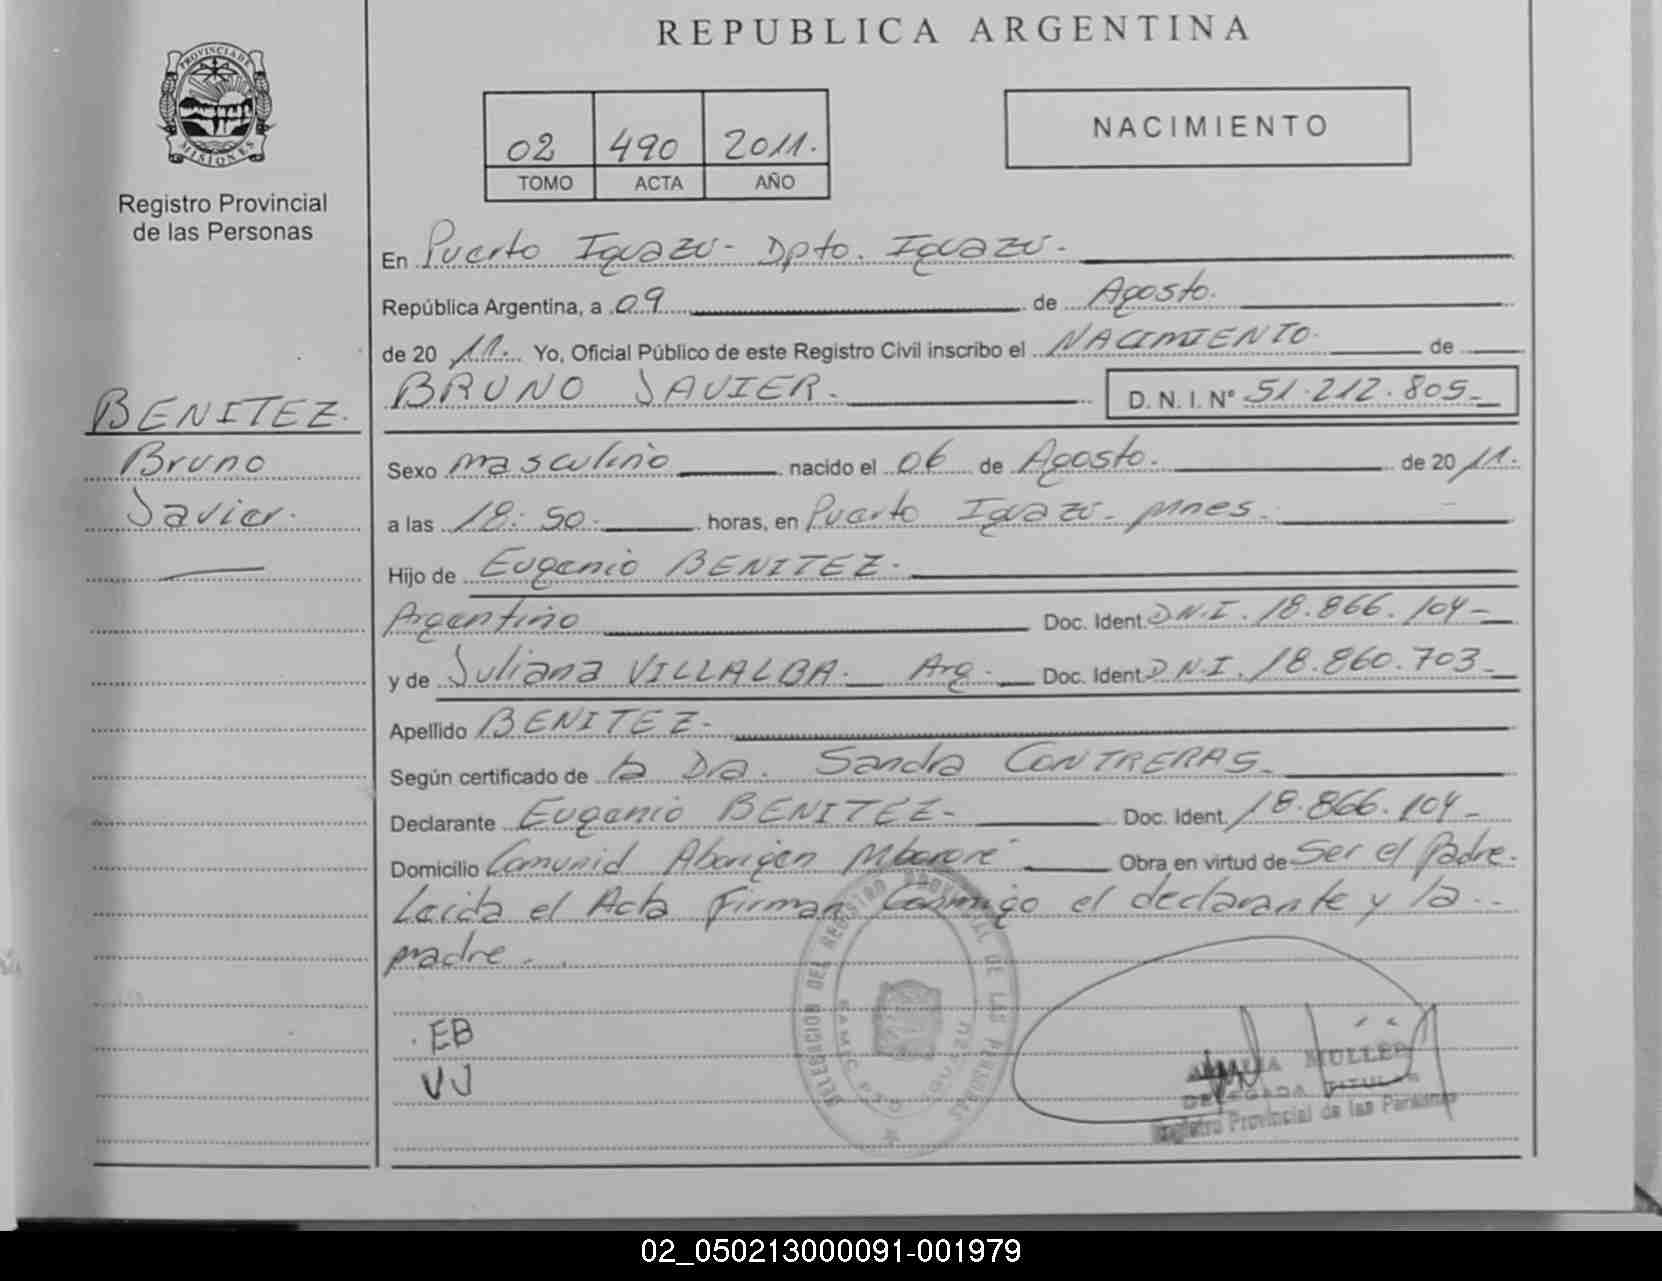 REPUBLICA ARGENTINA
PROVINCIA DE
MISIONES
Registro Provincial
de las Personas
02 490 2011.
TOMO ACTA AÑO
NACIMIENTO
En Puerto Iguazú - Dpto. Iguazú -
República Argentina, a 09 de Agosto.
de 20 11. Yo, Oficial Público de este Registro Civil inscribo el NACIMIENTO. de
BRUNO JAVIER. D.N.I. Nº 51.212.805_
BENITEZ.
Bruno
Javier.
Sexo masculino nacido el 06 de Agosto. de 20 11.
a las 18:50. horas, en Puerto Iguazú - Mnes.
Hijo de Eugenio BENITEZ.
Argentino Doc. Ident. D.N.I. 18.866.104_
y de Juliana VILLALBA. Arg. Doc. Ident. D.N.I. 18.860.703_
Apellido BENITEZ.
Según certificado de la Dra. Sandra CONTRERAS_
Declarante Eugenio BENITEZ - Doc. Ident. 18.866.104_
Domicilio Comunid Aborigen Mbororé Obra en virtud de Ser el Padre.
Leida el Acta Firman Conmigo el declarante y la
madre.
EB
VJ
DELEGACION DEL REGISTRO PROVINCIAL DE LAS PERSONAS
MULLER
DELEGADA TITULAR
Registro Provincial de las Personas
02_050213000091-001979